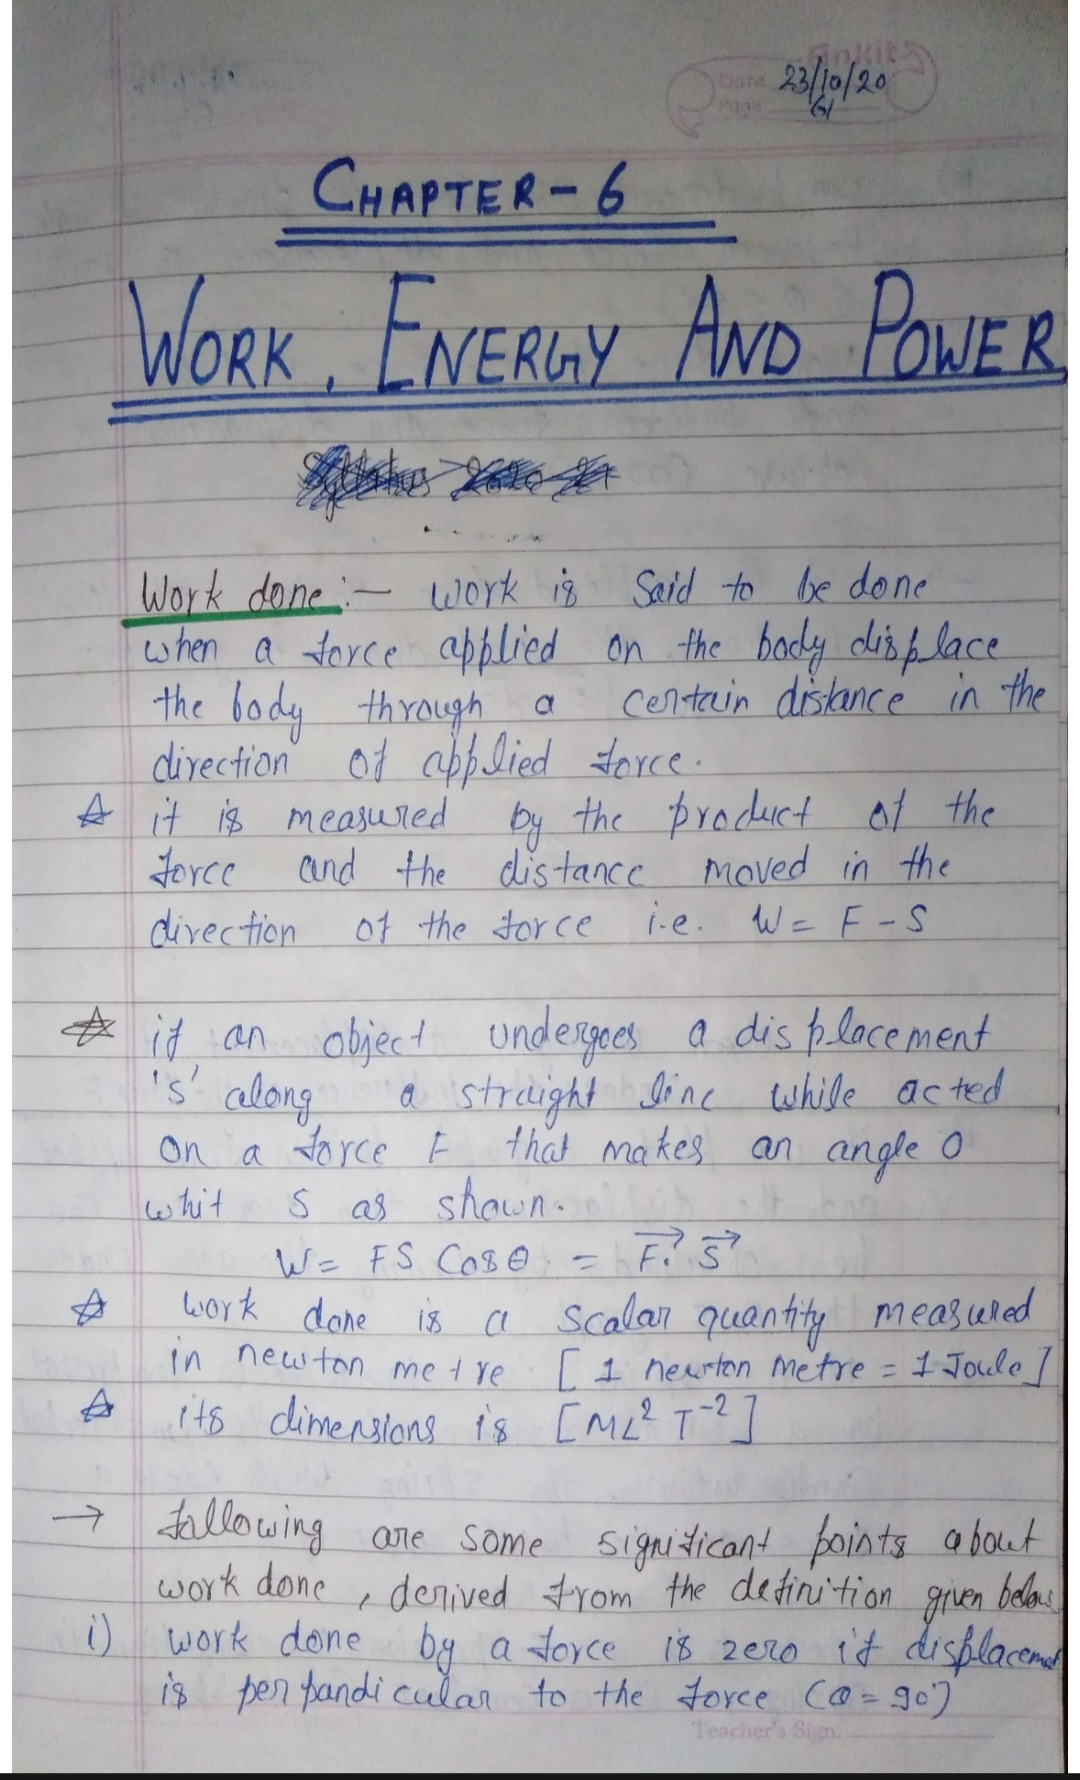 Date 23/10/20
Page 61
CHAPTER-6
WORK, ENERGY AND POWER
Work done:- work is said to be done
when a force applied on the body displace
the body through a certain distance in the
direction of applied force.
☆ it is measured by the product of the
force and the distance moved in the
direction of the force i.e. W= F-S
☆ if an object undergoes a displacement
's' along a straight line while acted
on a force F that makes an angle O
whit S as shown.
W= FS Cosθ = F⃗. S⃗
☆ work done is a scalar quantity measured
in newton metre [1 newton metre = 1 Joule]
☆ its dimensions is [ML² T⁻²]
→ following are some significant points about
work done, derived from the definition given below
i) work done by a force is zero if displacement
is perpandicular to the force (θ=90°)
Teacher's Sign.